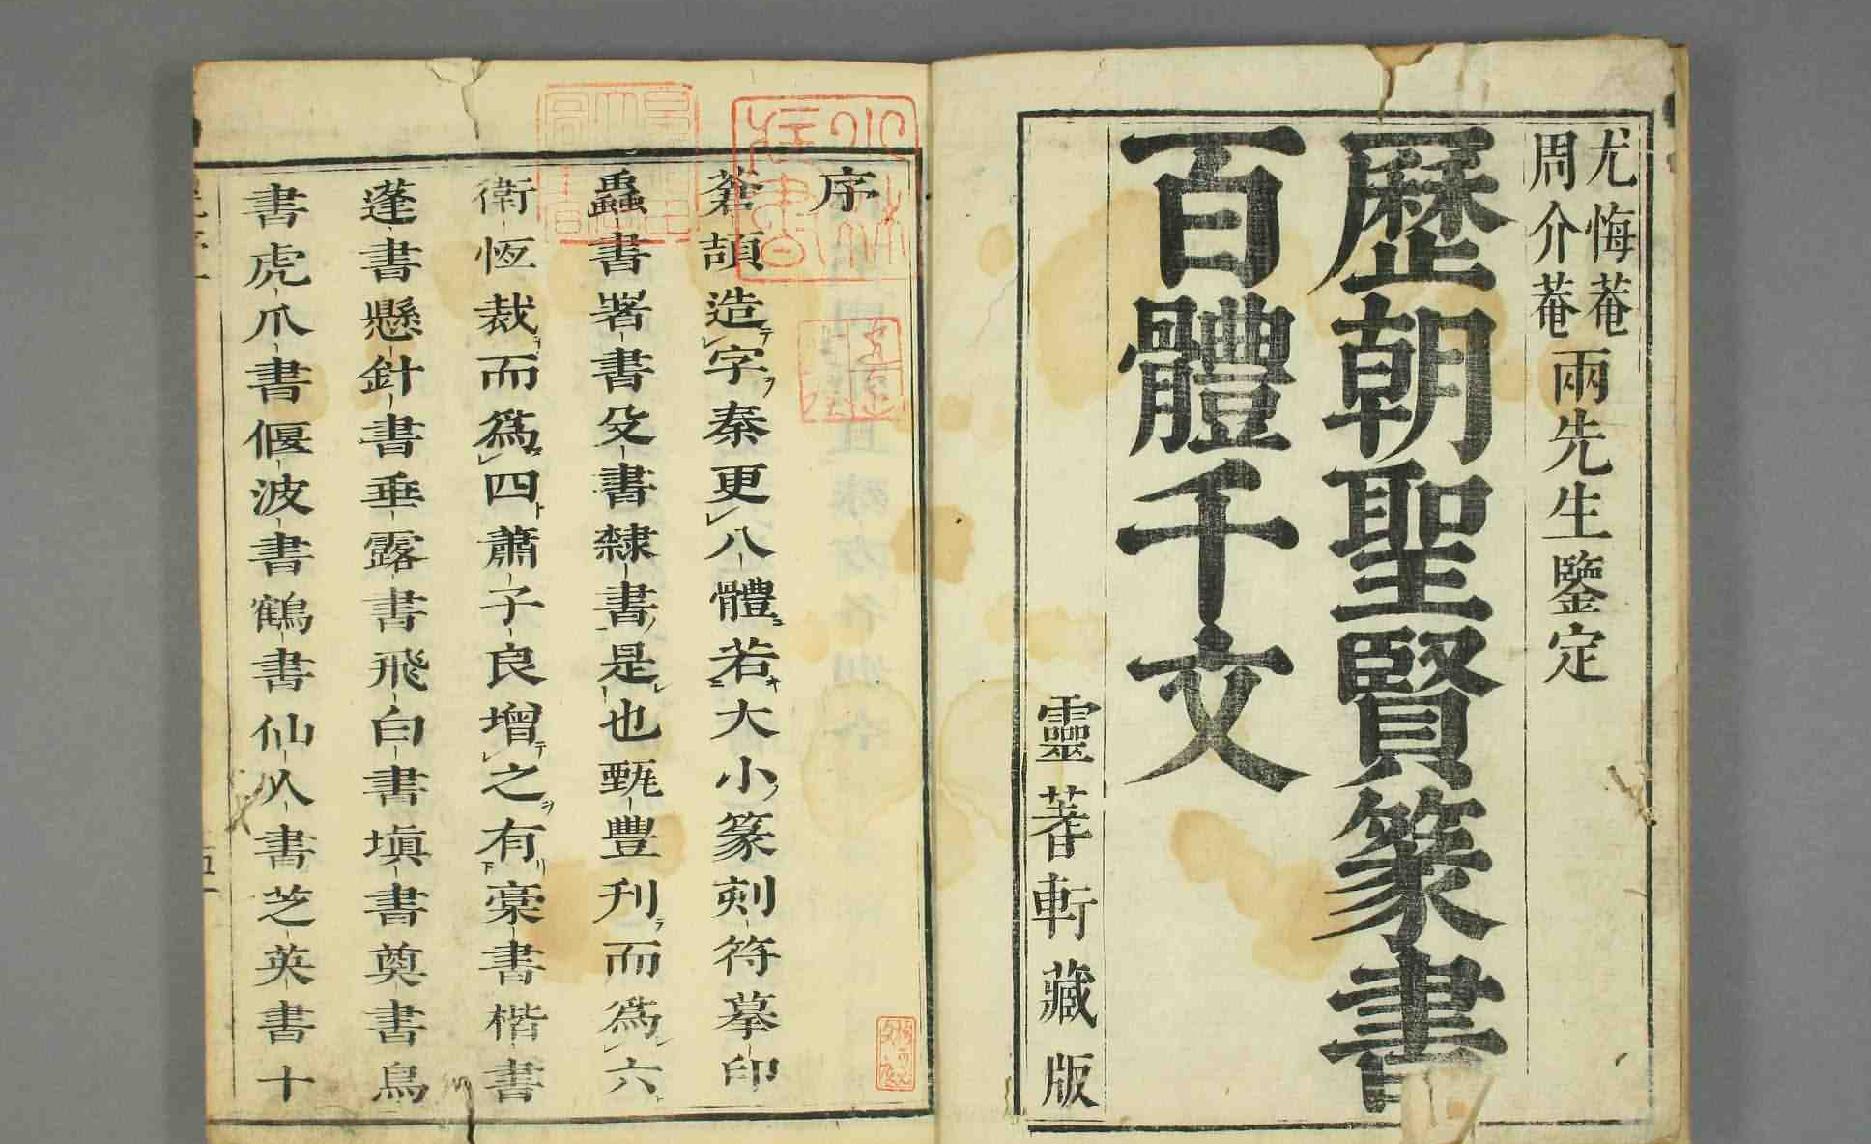 尤悔菴
周介菴
兩先生鑒定
歷朝聖賢篆書
百體千文
靈蓍軒藏版
序
蒼頡造字秦更八體若大小篆刻符摹印
蟲書署書殳書隸書是也甄豐刋而爲六
衛恆裁而爲四蕭子良增之有稾書楷書
蓬書懸針書垂露書飛白書塡書奠書鳥
書虎爪書偃波書鶴書仙人書芝英書十